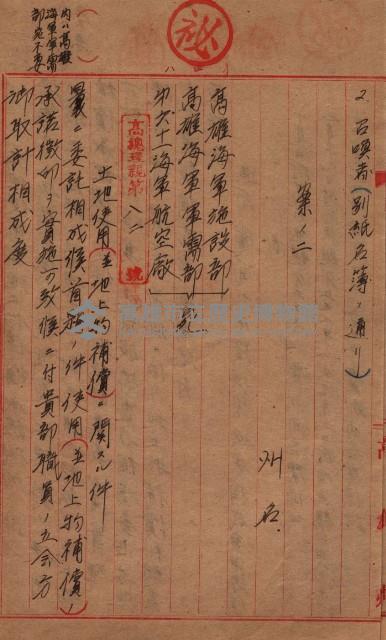 秘
2. 召喚者(別紙名簿ノ通リ)
案ノ二
州名
高雄海軍施設部
高雄海軍軍需部 宛
第六十一海軍航空廠
高總理祕第 八二 號
土地使用(並地上物補償)ニ関スル件
曩ニ委託相成候首題ノ件使用(並地上物補償)ノ
承諾徴印ヲ実施可致候ニ付貴部職員ノ立会方
御取計相成度
内ハ高雄
海軍軍需
部宛不要
高雄市立歷史博物館